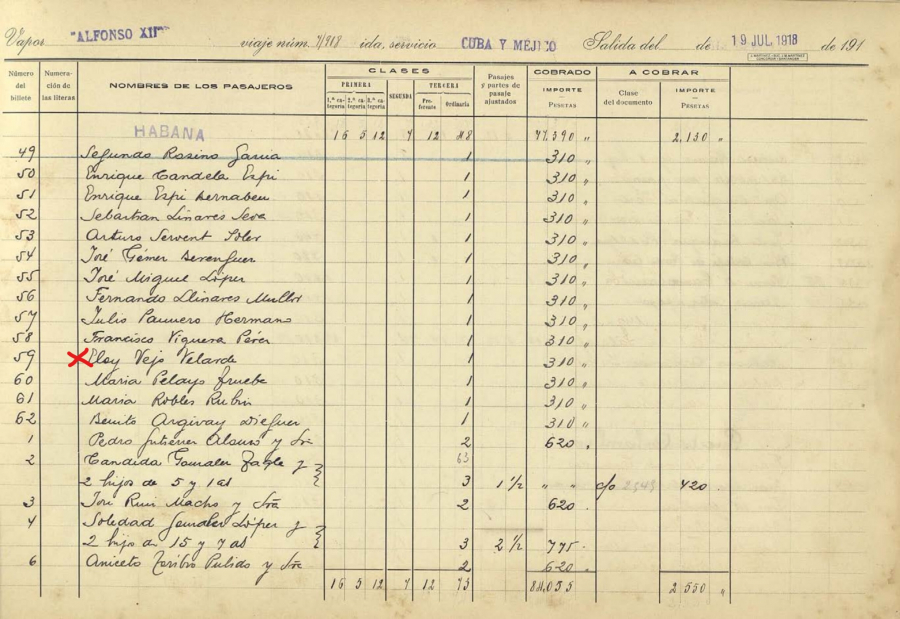 Vapor "ALFONSO XII" viaje núm. 7/918 ida, servicio CUBA Y MEJICO Salida del de 19 JUL 1918 de 191
Número del billete Numeración de las literas NOMBRES DE LOS PASAJEROS CLASES Pasajes y partes de pasaje ajustados COBRADO A COBRAR
PRIMERA SEGUNDA TERCERA IMPORTE Clase del documento IMPORTE
1.ª categoría 2.ª categoría 3.ª categoría Preferente Ordinaria PESETAS PESETAS
HABANA 16 5 12 7 12 48 77.390 " 2.130 "
49 Segundo Rosino Garcia 1 310 "
50 Enrique Candela Espi 1 310 "
51 Enrique Espi Bernabeu 1 310 "
52 Sebastian Linares Seva 1 310 "
53 Arturo Servent Soler 1 310 "
54 José Gémer Berenguer 1 310 "
55 José Miguel López 1 310 "
56 Fernando Llinares Mullor 1 310 "
57 Julio Hermano 1 310 "
58 Francisco Viguera Pérez 1 310 "
59 Eloy Vejo Velarde 1 310 "
60 Maria Pelayo 1 310 "
61 Maria Robles Rubin 1 310 "
62 Benito Dieguez 1 310 "
1 Pedro Gutierrez Alonso y Sra 2 620 "
2 Candida Gonzalez y 63
2 hijos de 5 y 1 as 3 1 1/2 " " c/o 420
3 José Ruiz Macho y Sra 2 620
4 Soledad Gonzalez López y
2 hijo de 15 y 7 as 3 2 1/2 775
6 Aniceto Toribio Pulido y Sra 2 620
16 5 12 7 12 73 84.055 2 550 "